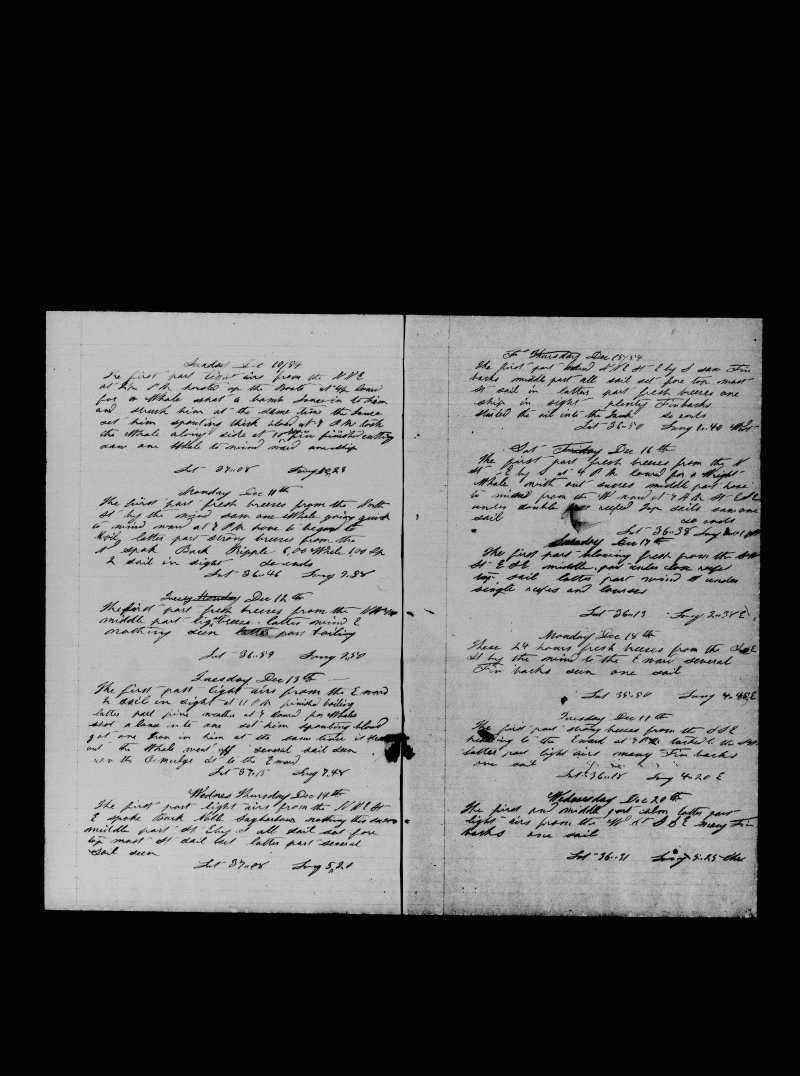 Sunday Dec 10/54
The first part light airs from the NNE
at PM hoisted up the Boats at 4pm lowerd
for a Whale shot a bomb lance in to him
and struck him at the same time the Lance
set him spouting thick blood at 8 PM took
the Whale along side at 10 finished cutting
saw one Whale to wind ward one ship
Lat 37..08 Long
Monday Dec 11th
The first part fresh breezes from the North
St by the wind saw one Whale going quick
to wind ward at 8 PM hove to began to
boil latter part strong breezes from the
N spok Bark Ripple 6,00 Whale 100 Sp
2 sail in sight so ends
Lat 36..46 Long 9.38
Monday Dec 12th
The first part fresh breezes from the
middle part light breeze latter wind E
nothing seen latter part boiling
Lat 36..59 Long 7,50
Tuesday Dec 13th
The first part light airs from the E ward
2 sail in sight at 11 PM finished boiling
latter part fine weather at 7 lowerd for Whales
shot a lance into one set him spouting blood
got one Iron in him at the same time it
out the Whale went off several sail seen
saw the Omulge St to the E ward
Lat 37..15 Long 7.48
Wednes Thursday Dec 14th
The first part light airs from the NNE St
E spoke Bark Noble Sagharbour nothing this season
middle part St E by S all sail set fore
top mast St sail set latter part several
sail seen
Lat 37..08 Long 5,20
Thursday Dec 15/54
The first part wind NNE St E by S saw Fin
backs middle part all sail set fore top mast
St sail in latter part fresh breezes one
ship in sight plenty Finbacks
the oil into the so ends
Lat 36..50 Long 1..40 West
Sat Friday Dec 16th
The first part fresh breezes from the N
St E by S at 4 PM lowerd for a Wright
Whale with out success middle part hove
to wind from the W ward at 7 AM St ESE
under double reefed Top sails saw one
sail so ends
Lat 36..38 Long
Sunday Dec 17th
The first part blowing fresh from the
St ESE middle part under close reefed
top sail latter part wind under
single reefes and courses
Lat 36..13 Long 2..38 E
Monday Dec 18th
These 24 hours fresh breezes from the
St by the wind to the E ward several
Fin backs seen one sail
Lat 35..50 Long 4..45,E
Tuesday Dec 19th
The first part strong breezes from the SSE
heading to the E ward at 7 PM tacked to the
latter part light airs many Fin backs
one sail
Lat 36..18 Long 4..20 E
Wednesday Dec 20th
The first and middle part calm latter part
light airs from the W St SSE many Fin
backs one sail
Lat 36..31 Long 5..25